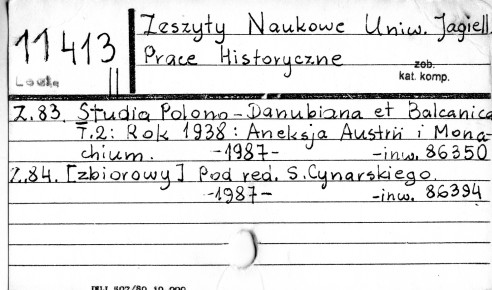 11413
II
Zeszyty Naukowe Uniw. Jagiell.
Prace Historyczne
zob.
kat. komp.
Z.83. Studia Polono-Danubiana et Balcanica
T.2: Rok 1938: Aneksja Austrii i Mona-
chium. -1987- -inw. 86350
Z.84. [zbiorowy] Pod red. S.Cynarskiego.
-1987- -inw. 86394